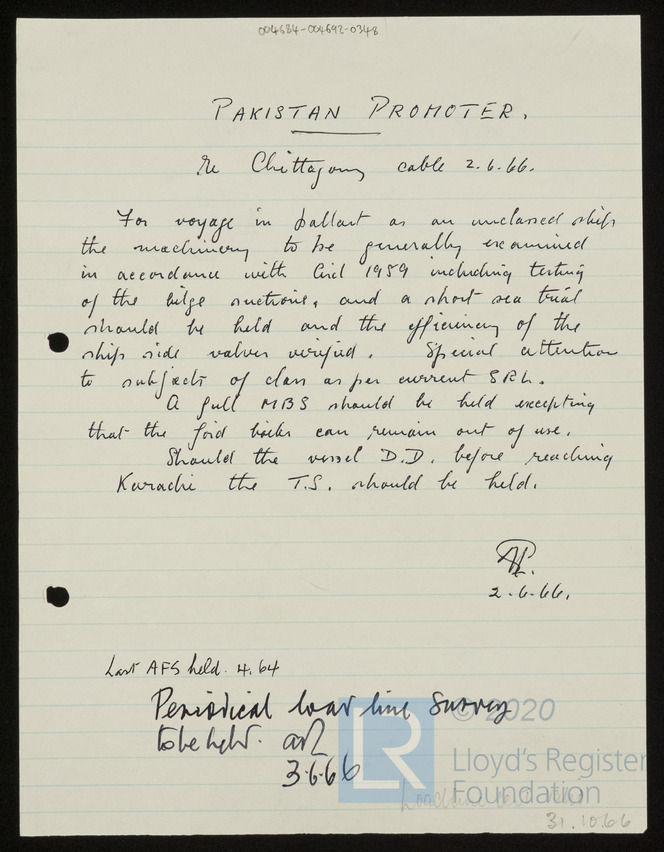 004684-004692-0348
PAKISTAN PROMOTER.
Re Chittagong cable 2.6.66.
For voyage in ballast as an unclassed ship
the machinery to be generally examined
in accordance with Circl 1959 including testing
of the bilge suctions, and a short sea trial
should be held and the efficiency of the
ship side valves verified. Special attention
to subjects of class as per current SRL.
A full MBS should be held excepting
that the fwd boiler can remain out of use.
Should the vessel D.D. before reaching
Karachi the T.S. should be held.
2.6.66.
Last AFS held. 4.64
Periodical load line Survey
to be held.
3.6.66
© 2020
LR
Lloyd's Register
Foundation
31.10.66